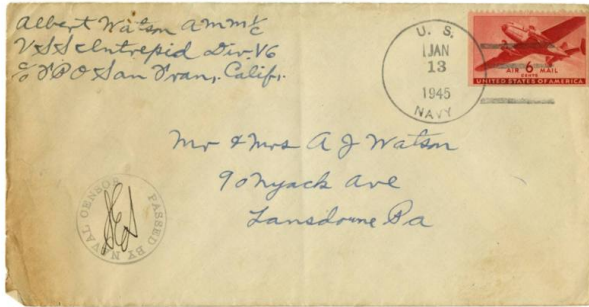 Albert Watson AMM 1/C
USS Intrepid Div. V6
c/o FPO San Fran, Calif.
U. S.
JAN
13
1945
NAVY
AIR 6 MAIL
CENTS
UNITED STATES OF AMERICA
Mr & Mrs A J Watson
90 Nyack Ave
Lansdowne Pa
PASSED BY NAVAL CENSOR